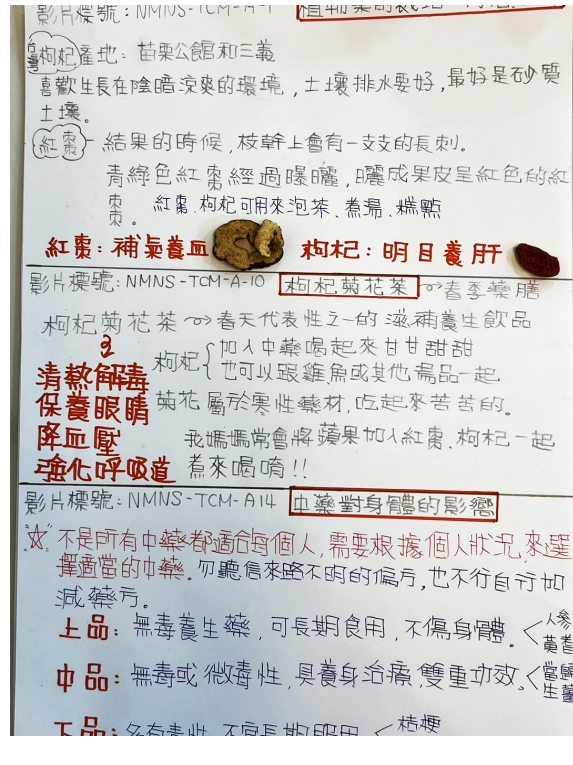 影片標號:NMNS-TCM-A-
台灣枸杞產地:苗栗公館和三義
喜歡生長在陰暗涼爽的環境,土壤排水要好,最好是砂質
土壤。
紅棗 結果的時候,枝幹上會有一支支的長刺。
青綠色紅棗經過曝曬,曬成果皮呈紅色的紅
棗。 紅棗、枸杞可用來泡茶、煮湯、糕點
紅棗:補氣養血 枸杞:明目養肝
影片標號:NMNS-TCM-A-10 枸杞菊花茶 春季藥膳
枸杞菊花茶 春天代表性之一的滋補養生飲品
枸杞 加入中藥喝起來甘甘甜甜
也可以跟雞魚或其他湯品一起
清熱解毒
保養眼睛 菊花屬於寒性藥材,吃起來苦苦的。
降血壓 我媽媽常會將蘋果加入紅棗、枸杞一起
強化呼吸道 煮來喝唷!!
影片標號:NMNS-TCM-A14 中藥對身體的影響
不是所有中藥都適合每個人,需要根據個人狀況,來選
擇適當的中藥。勿聽信來路不明的偏方,也不行自行加
減藥方。
上品:無毒養生藥,可長期食用,不傷身體。 人參
黃耆
中品:無毒或微毒性,具養身治療,雙重功效。 當歸
生薑
下品:多有毒性,不宜長期服用 桔梗